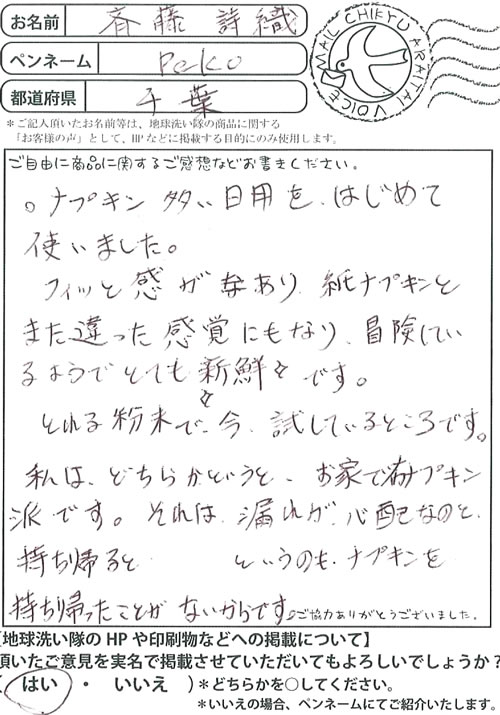 お名前 斉藤 詩織
ペンネーム Peko
都道府県 千葉
MAIL CHIKYU ARAITAI VOICE
＊ご記入頂いたお名前等は、地球洗い隊の商品に関する
「お客様の声」として、HPなどに掲載する目的にのみ使用します。
ご自由に商品に関するご感想などお書きください。
○ナプキン 多い日用を、はじめて
使いました。
フィッと感が あり、紙ナプキンと
また違った感覚にもなり、冒険してい
るようでとても新鮮々です。
とれる粉末で、今、試しているところです。
私は、どちらかというと、お家で布ナプキン
派です。それは、漏れが、心配なのと、
持ち帰ると というのも、ナプキンを
持ち帰ったことが ないからです。
ご協力ありがとうございました。
【地球洗い隊のHPや印刷物などへの掲載について】
頂いたご意見を実名で掲載させていただいてもよろしいでしょうか？
（ はい ・ いいえ ）＊どちらかを○してください。
＊いいえの場合、ペンネームにてご紹介いたします。